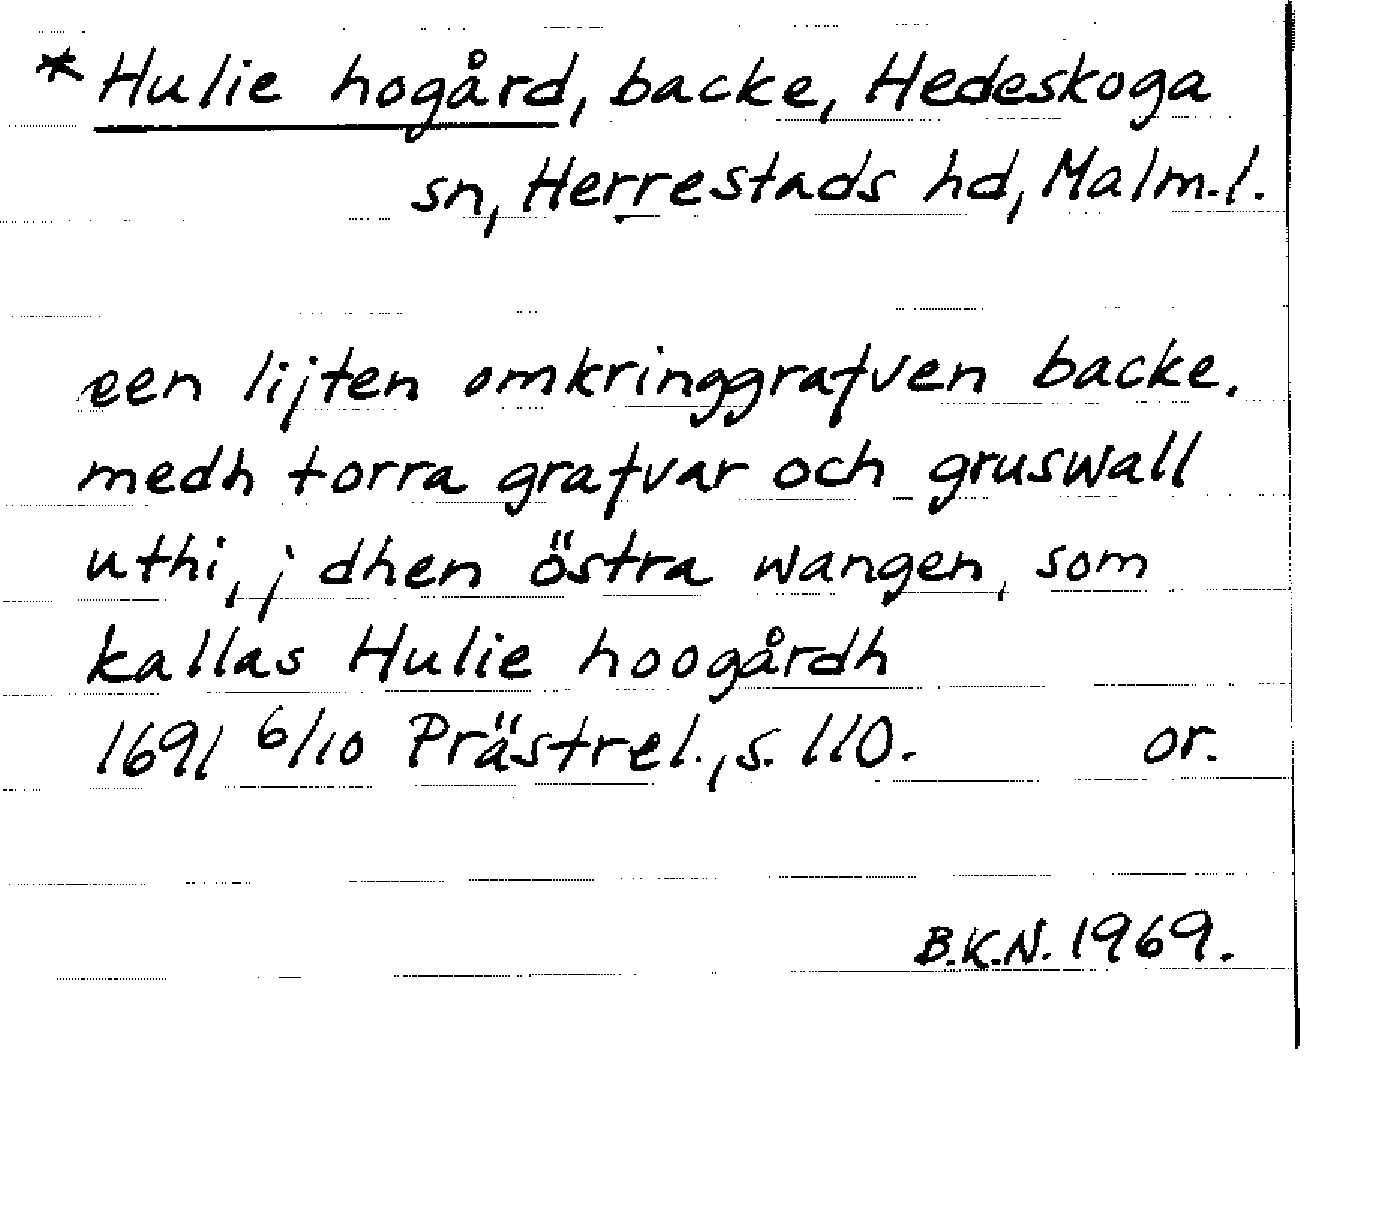 *Hulie hogård, backe, Hedeskoga
sn, Herrestads hd, Malm.l.
een lijten omkringgrafven backe.
medh torra grafvar och gruswall
uthi, j dhen östra wangen, som
kallas Hulie hoogårdh
1691 6/10 Prästrel., s. 110. or.
B.K.N. 1969.